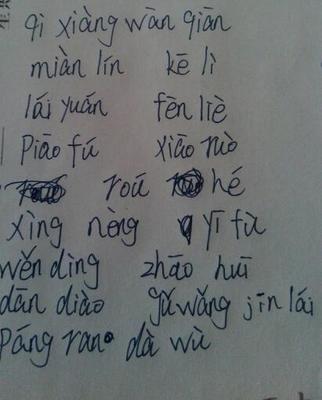 qi xiàng wàn qiān
miàn lín kē lì
lái yuán fēn liè
Piāo fú xiāo ruò
roú hé
xìng nòng yī fù
wěn dìng zhāo huī
dān diào gǔ wǎng jīn lái
páng ran dà wù